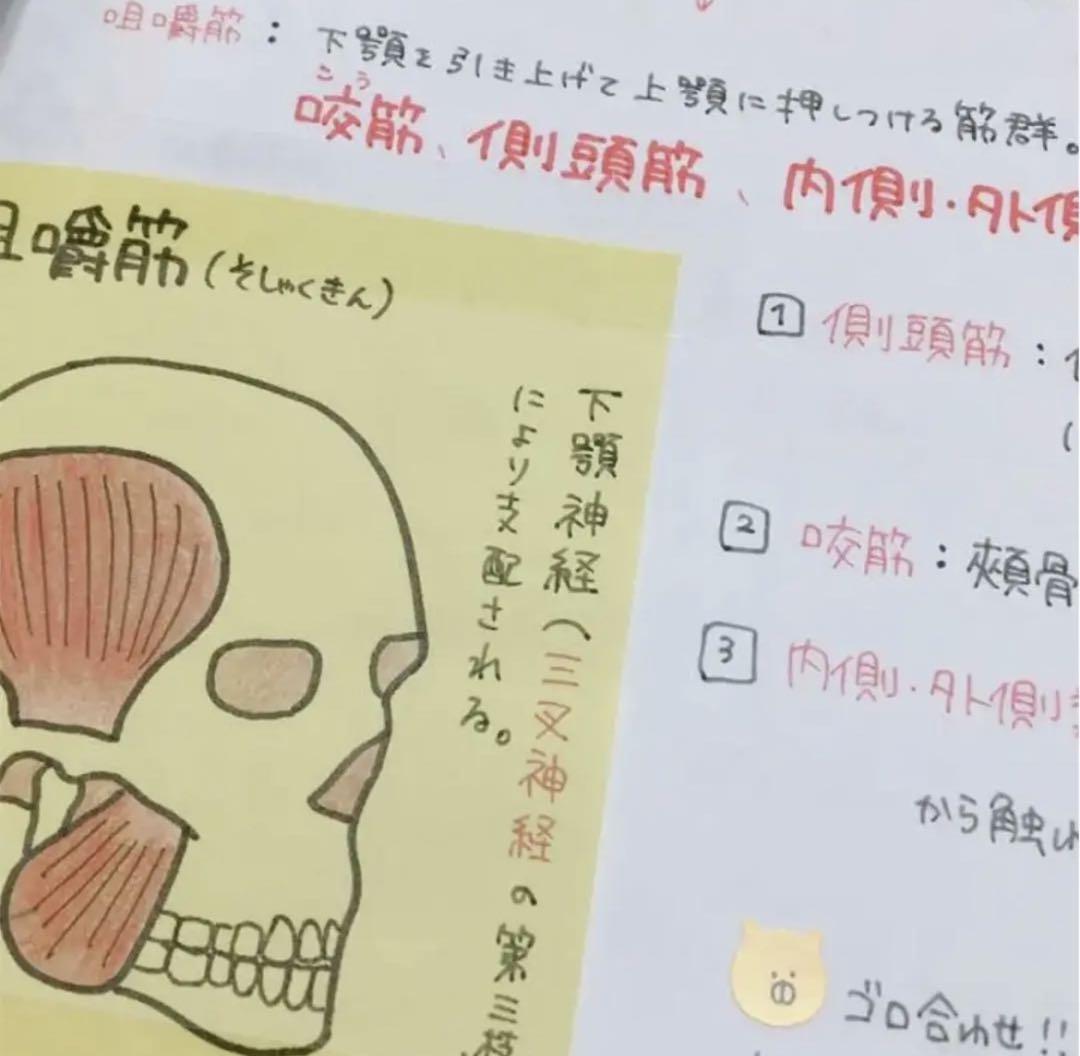 咀嚼筋：下顎を引き上げて上顎に押しつける筋群。
こう
咬筋、側頭筋、内側・外側
咀嚼筋(そしゃくきん)
下顎神経(三叉神経の第三枝
により支配される。
1 側頭筋：
2 咬筋：頬骨
3 内側・外側
から触れ
ゴロ合わせ!!